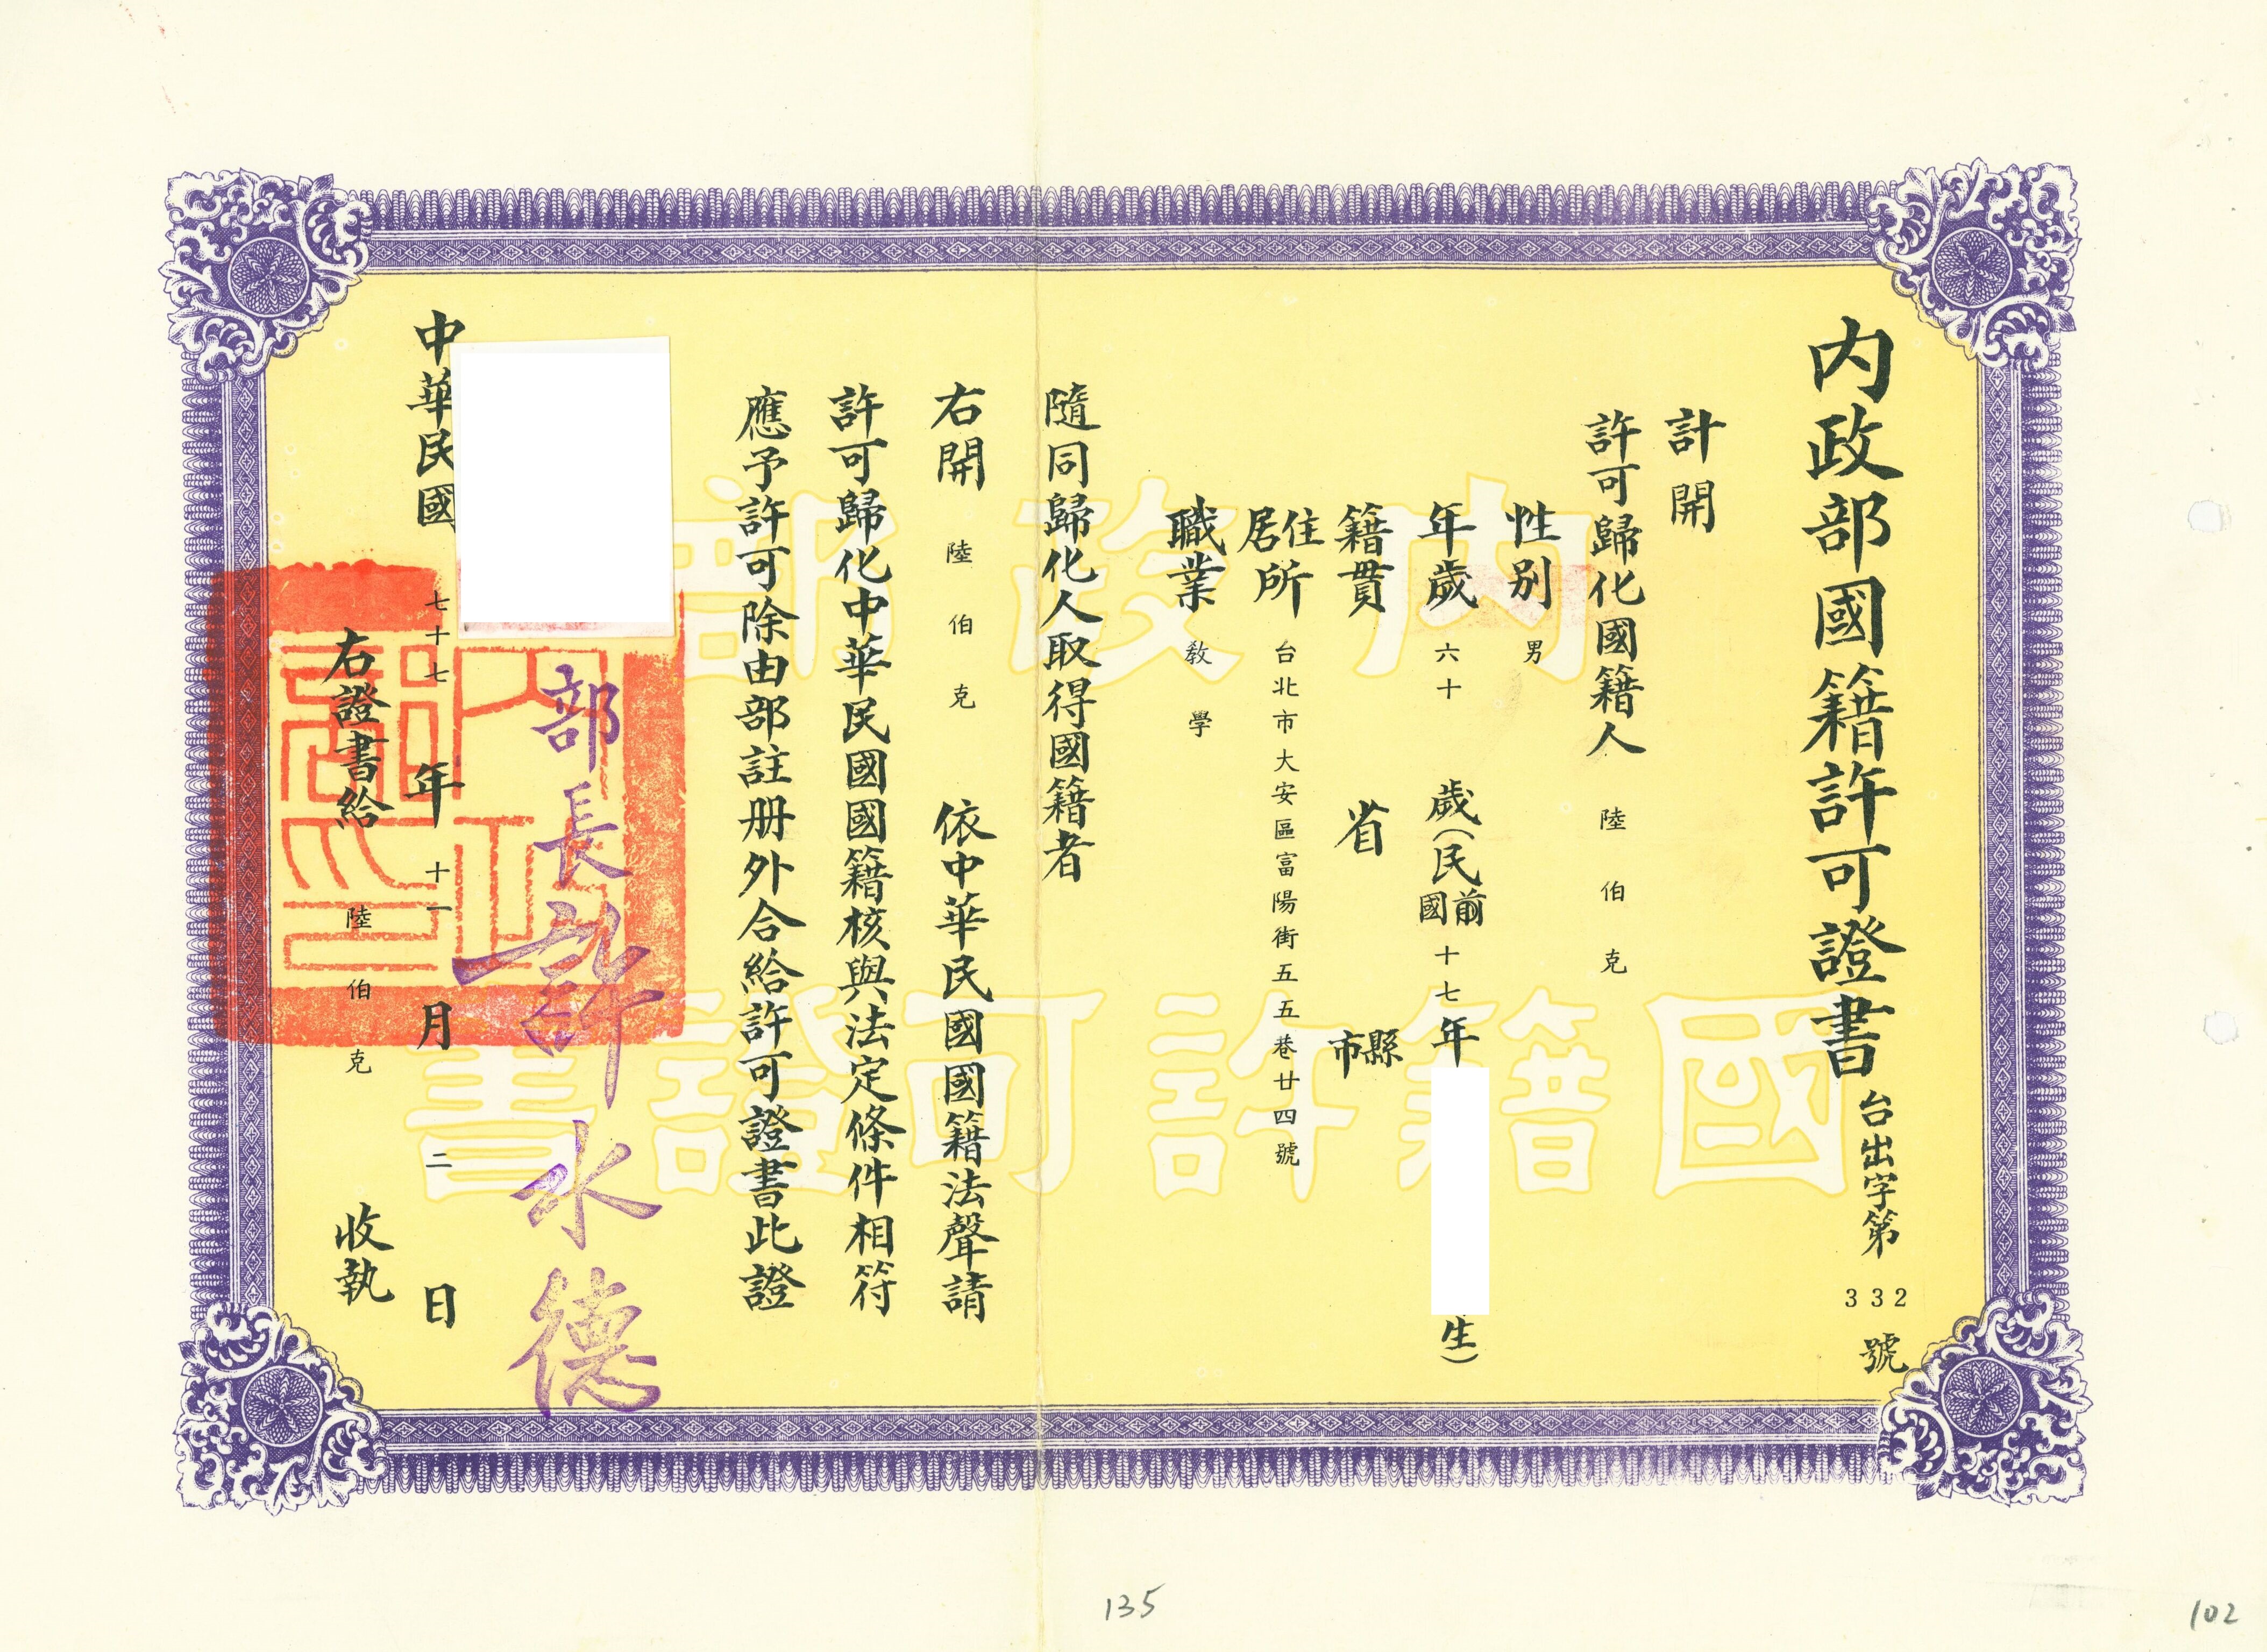 內政部國籍許可證書 台出字第 332 號
計開
許可歸化國籍人 陸伯克
性別 男
年歲 六十 歲(民國前 十七年 生)
籍貫 省 縣市
住居所 台北市大安區富陽街五五巷廿四號
職業 教學
隨同歸化人取得國籍者
右開 陸伯克 依中華民國國籍法聲請
許可歸化中華民國國籍核與法定條件相符
應予許可除由部註册外合給許可證書此證
部長許水德
中華民國 七十七 年 十一 月 二 日
右證書給 陸伯克 收執
內政部
國籍許可證書
內政部之印
135
102